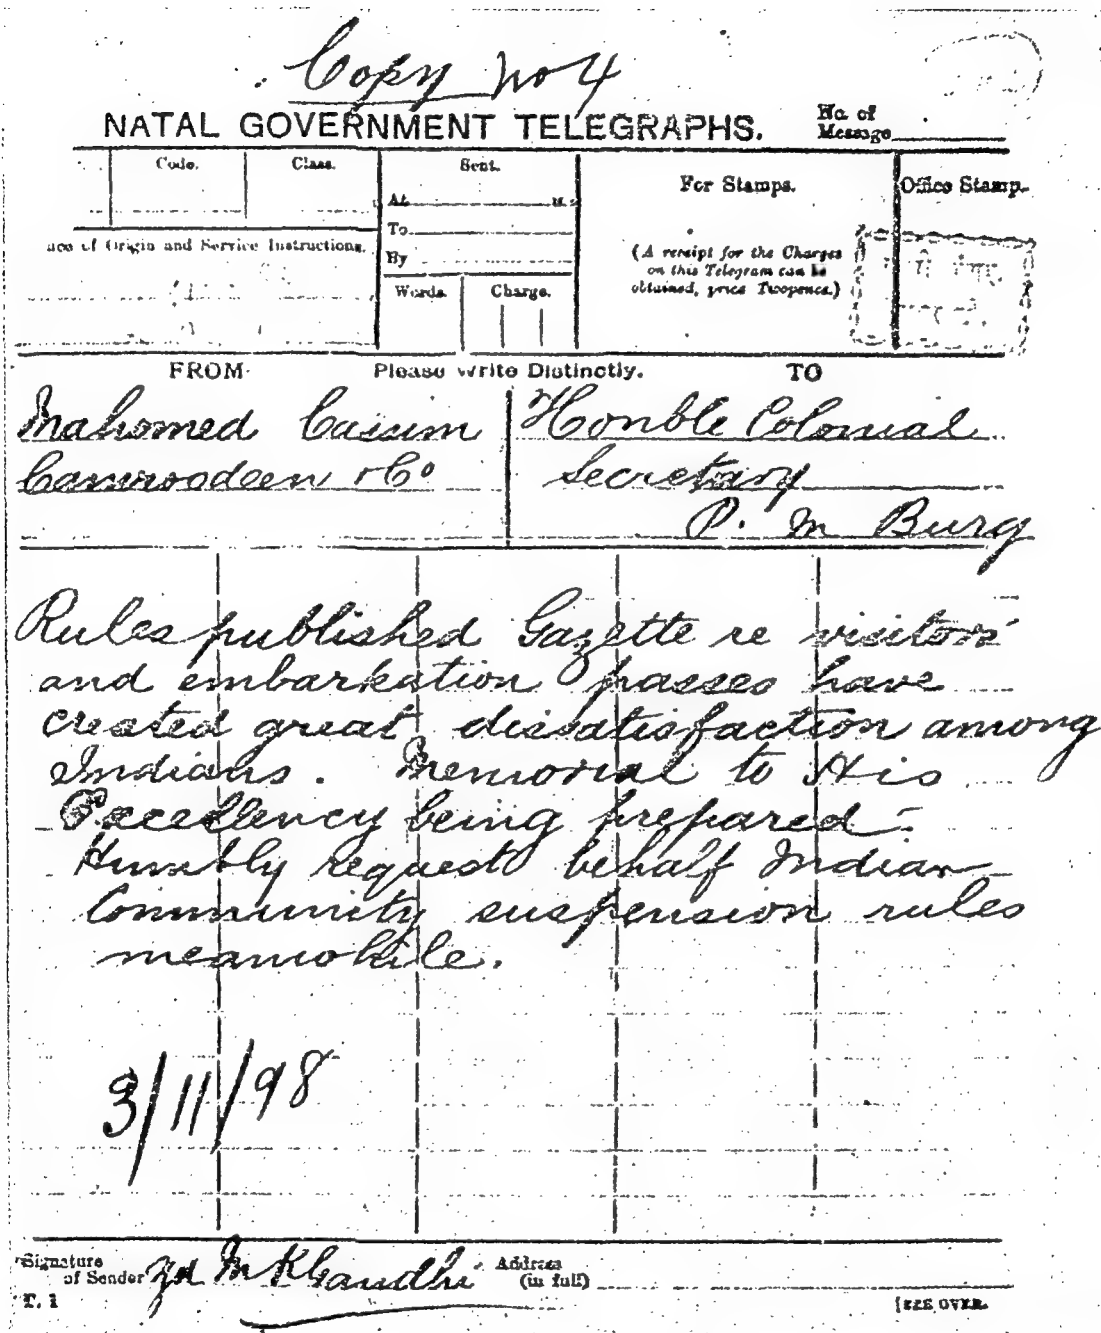 Copy no 4
NATAL GOVERNMENT TELEGRAPHS.
No. of
Message
Code.
Class.
Sent.
At M.
To
By
Words.
Charge.
For Stamps.
(A receipt for the Charges
on this Telegram can be
obtained, price Twopence.)
Office Stamp.
ace of Origin and Service Instructions.
FROM
Please Write Distinctly.
TO
Mahomed Cassim
Camroodeen & Co
Honble Colonial
Secretary
P. M Burg
Rules published Gazette re visitors'
and embarkation passes have
created great dissatisfaction among
Indians. Memorial to His
Excellency being prepared.
Humbly request behalf Indian
Community suspension rules
meanwhile.
3/11/98
Signature
of Sender
M K Gandhi
Address
(in full)
T. 1
[SEE OVER.